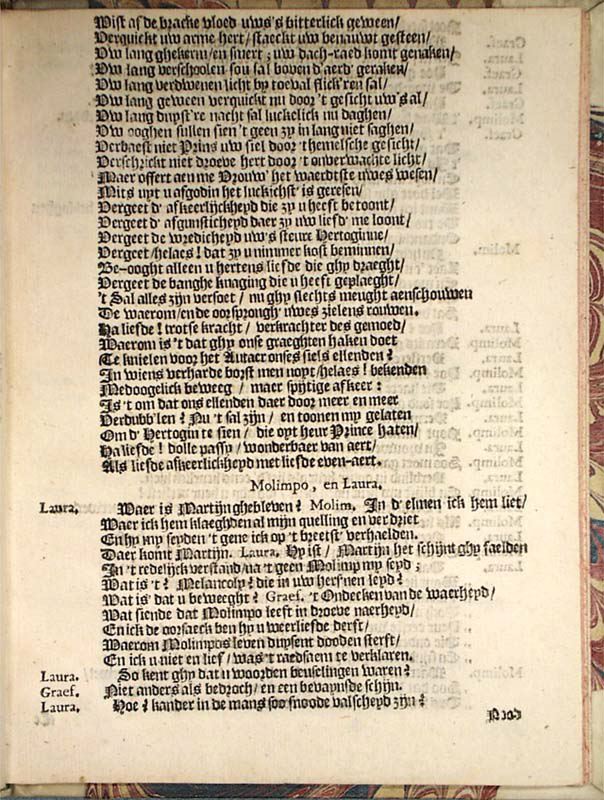 Wist af de bracke vloed uws's bitterlick geween/
Verquickt uw arme hert/ staeckt uw benauwt gesteen/
Uw lang ghekerm/ en smert; uw dach-raed komt genaken/
Uw lang verschoolen sou sal boven d'aerd' geraken/
Uw lang verdwenen licht by toeval flick'ren sal/
Uw lang geween verquickt nu door 't gesicht uw's al/
Uw lang duyst're nacht sal luckelick nu daghen/
Uw ooghen sullen sien 't geen zy in lang niet saghen/
Verbaest niet Prins uw siel door 't hemelsche gesicht/
Verschrickt niet droeve hert door 't onverwachte licht/
Maer offert aen me Vrouw' het waerdtste uwes wesen/
Mits uyt u afgodin het luckichst' is geresen/
Vergeet d' afkeerlijckheyd die zy u heeft betoont/
Vergeet d' afgunsticheyd daer zy uw liefd' me loont/
Vergeet de wredicheyd uw's steure Hertoginne/
Vergeet/ helaes! dat zy u nimmer kost beminnen/
Be-ooght alleen u hertens liefde die ghy draeght/
Vergeet de banghe knaging die u heeft geplaeght/
't Sal alles zijn versoet/ nu ghy slechts meught aenschouwen
De waerom/ en de oorsprongh uwes zielens rouwen.
Ha liefde! trotse kracht/ verkrachter des gemoed/
Waerom is't dat ghy onse graeghten haken doet
Te knielen voor het Autaer onses siels ellenden?
In wiens verharde borst men noyt/ helaes! bekenden
Medoogelick beweeg/ maer spijtige afkeer:
Is 't om dat ons ellenden daer door meer en meer
Verdubb'len? Nu 't sal zijn/ en toonen my gelaten
Om d' Hertogin te sien/ die oyt heur Prince haten/
Ha liefde! dolle passy/ wonderbaer van aert/
Als liefde afkeerlickheyd met liefde even-aert.
Molimpo, en Laura.
Laura. Waer is Martijn ghebleven? Molim. In d' elmen ick hem liet/
Waer ick hem klaeghden al mijn quelling en verdriet
En hy my seyden 't gene ick op 't breetst verhaelden.
Daer komt Martijn. Laura. Hy ist/ Martijn het schijnt ghy faelden
In 't redelijck verstand/ na 't geen Molimp my seyd;
Wat is 't? Melancoly? die in uw herssnen leyd?
Wat is dat u beweeght? Graef. 't Ondecken van de waerheyd/
Wat siende dat Molimpo leeft in droeve naerheyd/
En ick de oorsaeck ben hy u weerliefde derft/
Waerom Molimpos leven duysent dooden sterft/
En ick u niet en lief/ was 't raedsaem te verklaren.
Laura. So kent ghy dat u woorden beuselingen waren?
Graef. Niet anders als bedroch/ en een bevaynsde schijn.
Laura. Hoe? kander in de mans soo snoode valscheyd zijn?